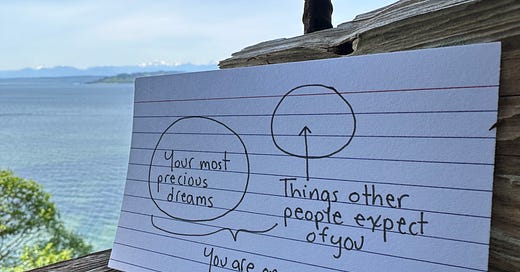 Your most
precious
dreams
Things other
people expect
of you
You are